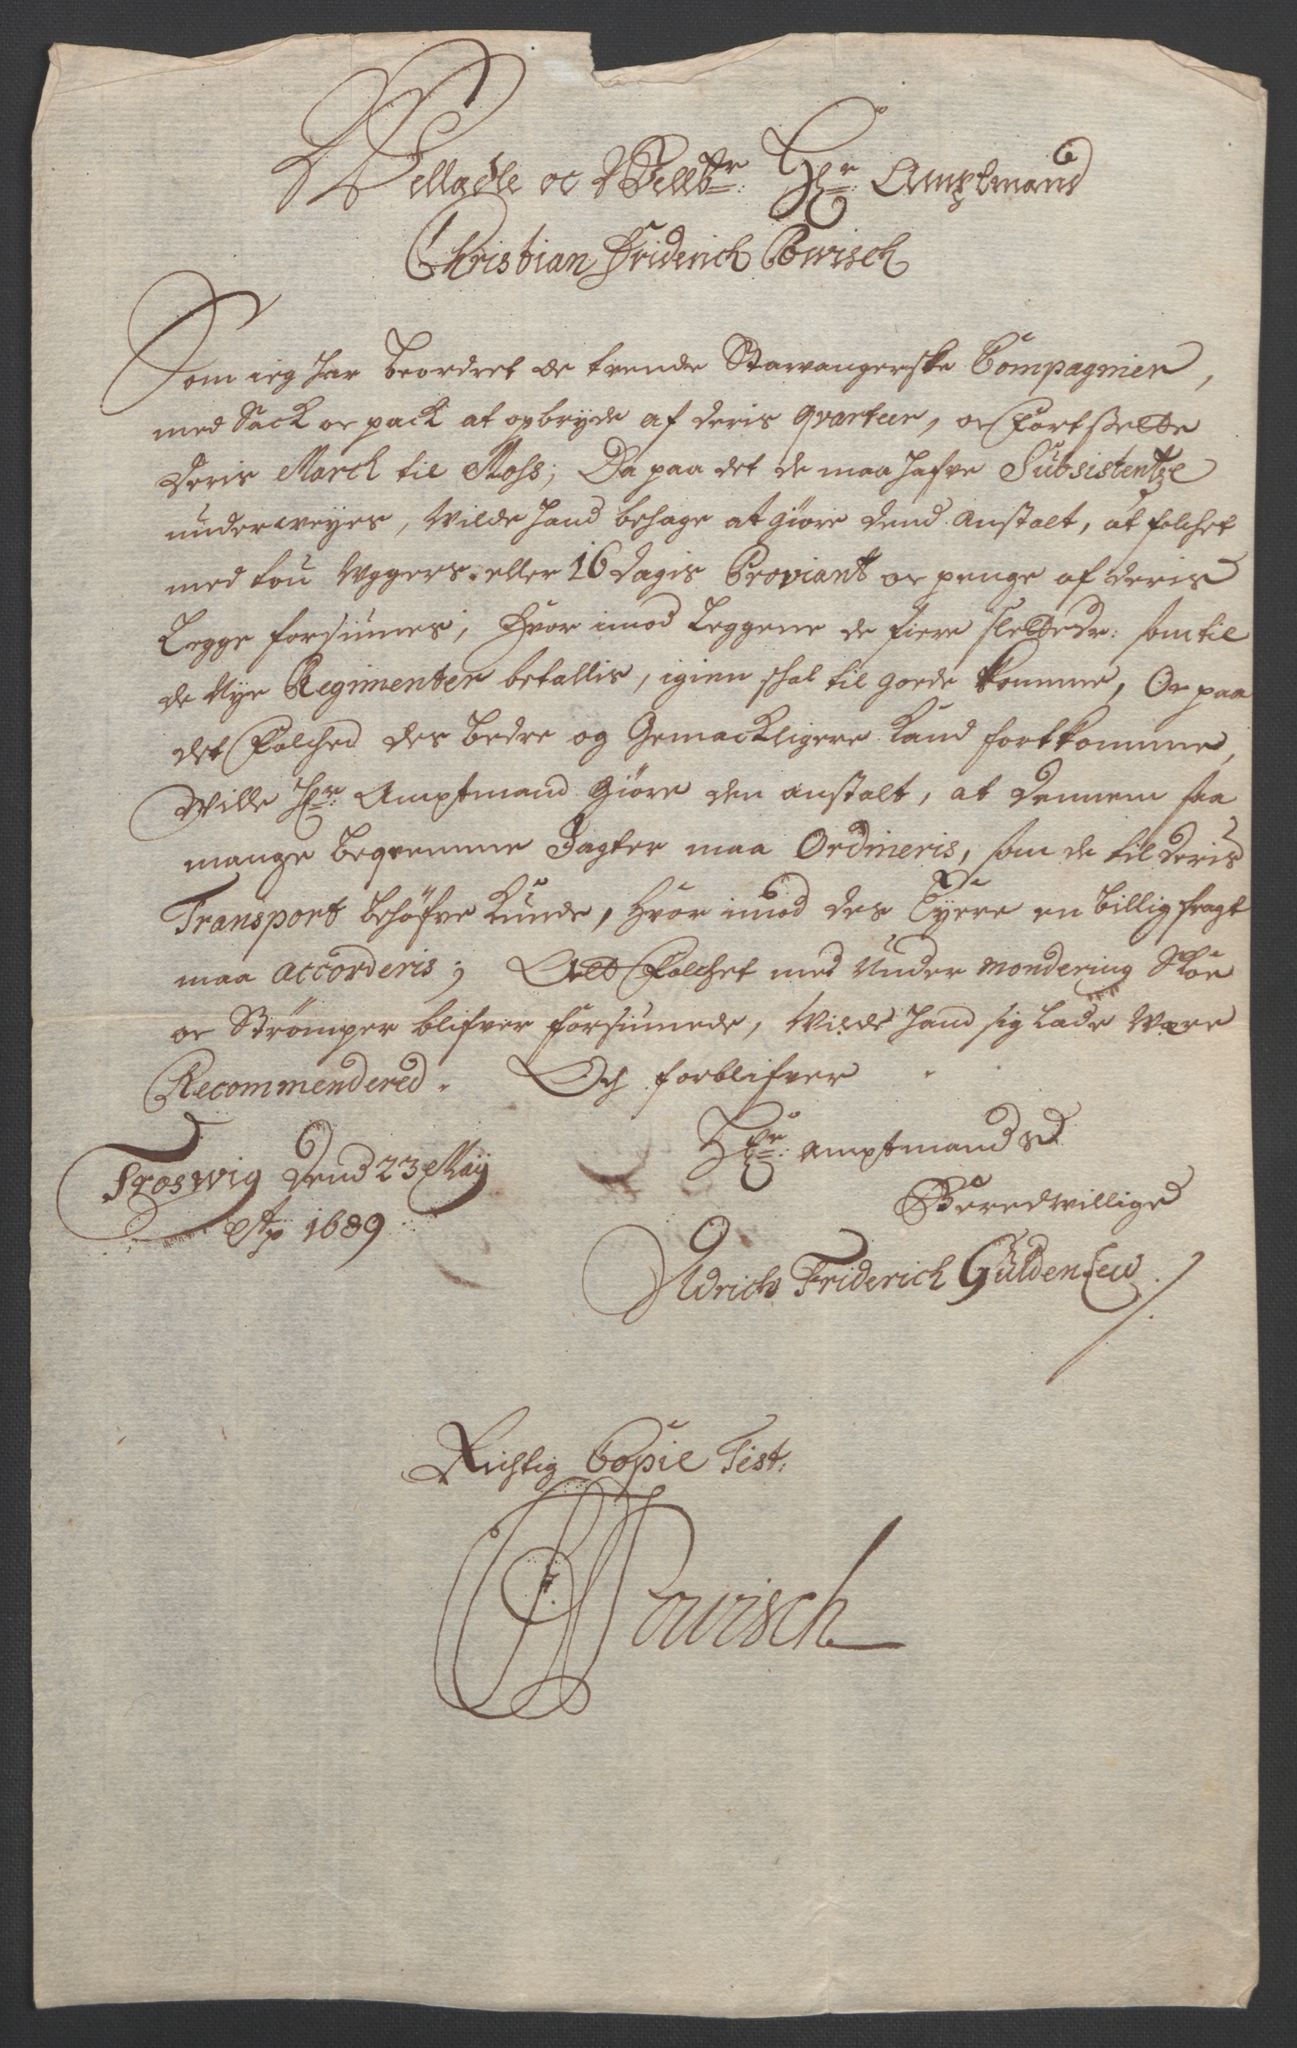 Velædle oc Velb:r H:r Amptmand
Christian Friderich Powisch
Som ieg har beordret de trende Stawangerske Compagnier,
med Sack oc pack at opbryde af deris qvarteer, oc Fortsette
deris March til Moss; Da paa det de maa hafve Subsistentze
underweyes, Wilde hand behage at giøre dend anstalt, at folchet
med tou Uggers eller 16 dagis Proviant oc penge af deris
Legge forsiunes, Hvor imod Leggene de fiere slettedr: som til
de Nye Regimenter betallis, igien schal til goede komme, Oc paa
det Folched des bedre og Gemackligere Kand fortkomme,
Wille H:r Amptmand Giøre den anstalt, at dennem saa
mange beqvemme Jagter maa Ordineris, som de til deris
Transport behøfve Kunde, Hvor imod des Eyere en billig fragt
maa accorderis; At Folchet med Under mondering Skoe
oc Strømper blifver forsiunede, Wilde hand sig lade Være
Recommendered. Och forblifver
H:r Amptmands
Beredwillige
Froswig dend 23 Maÿ
Ao 1689
Uldrich Friderich Güldenlew
Richtig Copie Test:
CFPowisch